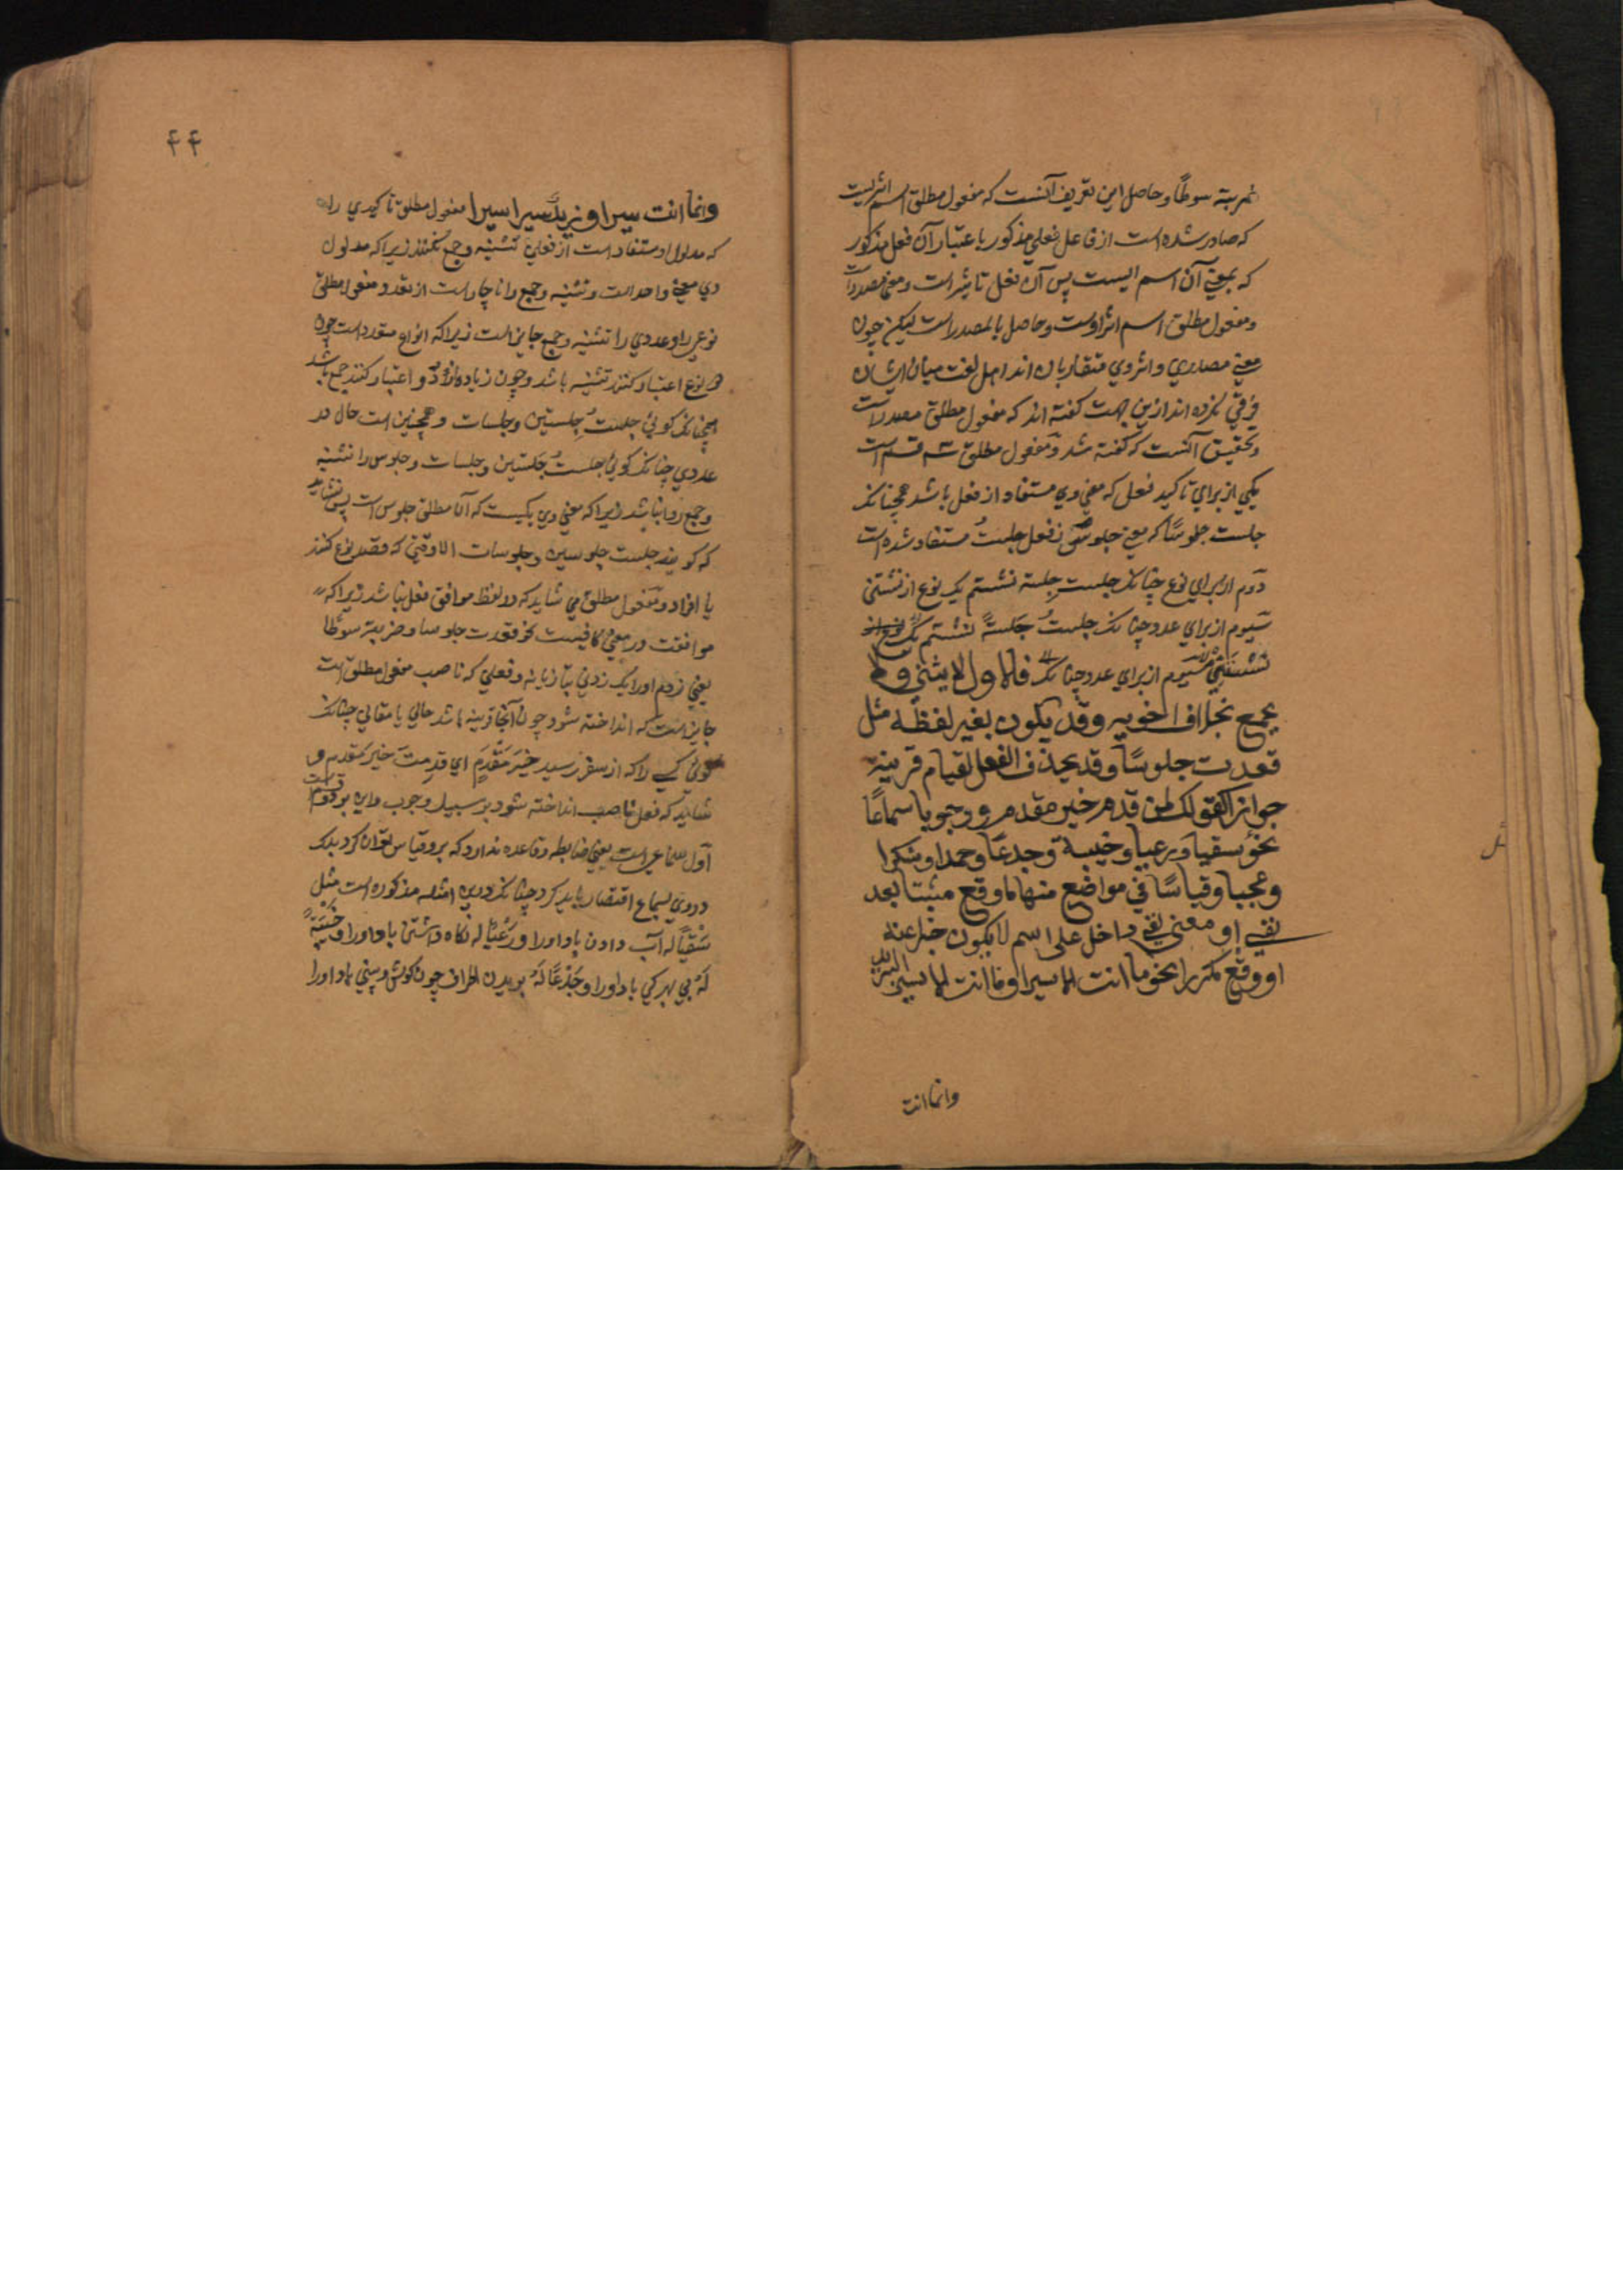 ضربته سوطًا و حاصل این تعریف آنست که مفعول مطلق اسم اثریست
که صادر شده است از فاعل فعلی مذکور باعتبار آن فعل مذکور
که بمعنی آن اسم است پس آن فعل تاثیر است و معنی مصدر است
و مفعول مطلق اسم اثر اوست و حاصل بالمصدر است لیکن چون
معنی مصدری و اثر وی متقاربان اند اهل لغت میان ایشان
فرقی نکرده اند ازین جهت گفته اند که مفعول مطلق مصدر است
و تحقیق آنست که گفته شد و مفعول مطلق سه قسم است
یکی از برای تاکید فعل که معنی وی مستفاد از فعل باشد همچنانک
جلست جلوسًا که معنی جلوس از فعل جلستُ مستفاد شده است
دوم از برای نوع چنانک جلست جِلسة نشستم یک نوع از نشستنی
سیوم از برای عدد چنانک جلستُ جَلسةً نشستم یک نوع از
نشستنی سیوم از برای عدد چنانک فالاول لا یثنی ولا
یجمع بخلاف اخویه وقد یکون بغیر لفظه مثل
قعدت جلوسًا وقد یحذف الفعل لقیام قرینة
جوازا کقولک لمن قدم خیر مقدم ووجوبا سماعًا
نحو سقیا ورعیا وخیبة وجدعًا وحمدا وشکرا
وعجبا وقیاسًا فی مواضع منها ما وقع مثبتا بعد
نفی او معنی نفی داخل علی اسم لا یکون خبرا عنه
او وقع مکررا نحو ما انت الا سیرا وما انت الا سیر البرید
وانما انت
۴۴
وانما انت سیرا وزیدٌ سیرا سیرا مفعول مطلق تاکیدی را
که مدلول او مستفاد است از فعل تثنیه و جمع نکنند زیرا که مدلول
وی معنی واحد است و تثنیه و جمع را ناچار است از تعدد و مفعول مطلق
نوعی را و عددی را تثنیه و جمع جایز است زیرا که انواع متعدد است چون
دو نوع اعتبار کنند تثنیه باشد و چون زیاده از دو اعتبار کنند جمع باشد
همچنانک گوئی جلستُ جِلستین و جلسات و همچنین است حال در
عددی چنانک گوئی جلستُ جَلستین و جلسات و جلوس را تثنیه
و جمع روا نباشد زیرا که معنی وی یکیست که آن مطلق جلوس است پس نشاید
که گویند جلست جلوسین و جلوسات الا وقتی که قصد نوع کنند
یا افراد و مفعول مطلق می شاید که در لفظ موافق فعل نباشد زیرا که
موافقت در معنی کافیست نحو قعدت جلوسا و ضربته سوطًا
یعنی زدم او را یک زدنی بتازیانه و فعلی که ناصب مفعول مطلق است
جایز است که انداخته شود چون آنجا قرینه باشد حالی یا مقالی چنانک
گوئی کسی را که از سفر رسید خیرَ مَقْدَمٍ ای قدمتَ خیر مقدم و
شاید که فعل ناصب انداخته شود بر سبیل وجوب و این بر دو قسم است
اول سماعی است یعنی ضابطه و قاعده ندارد که برو قیاس توان کرد بلک
در وی بسماع اقتصار باید کرد چنانک درین امثله مذکوره است مثل
سَقْیًا له آب دادن باد او را و رَعْیًا له نگاه داشتن باد او را و خَیْبَةً
لَهُ بی بهرگی باد او را و جَدْعًا لَهُ بریدن اطراف چون گوش و بینی باد او را